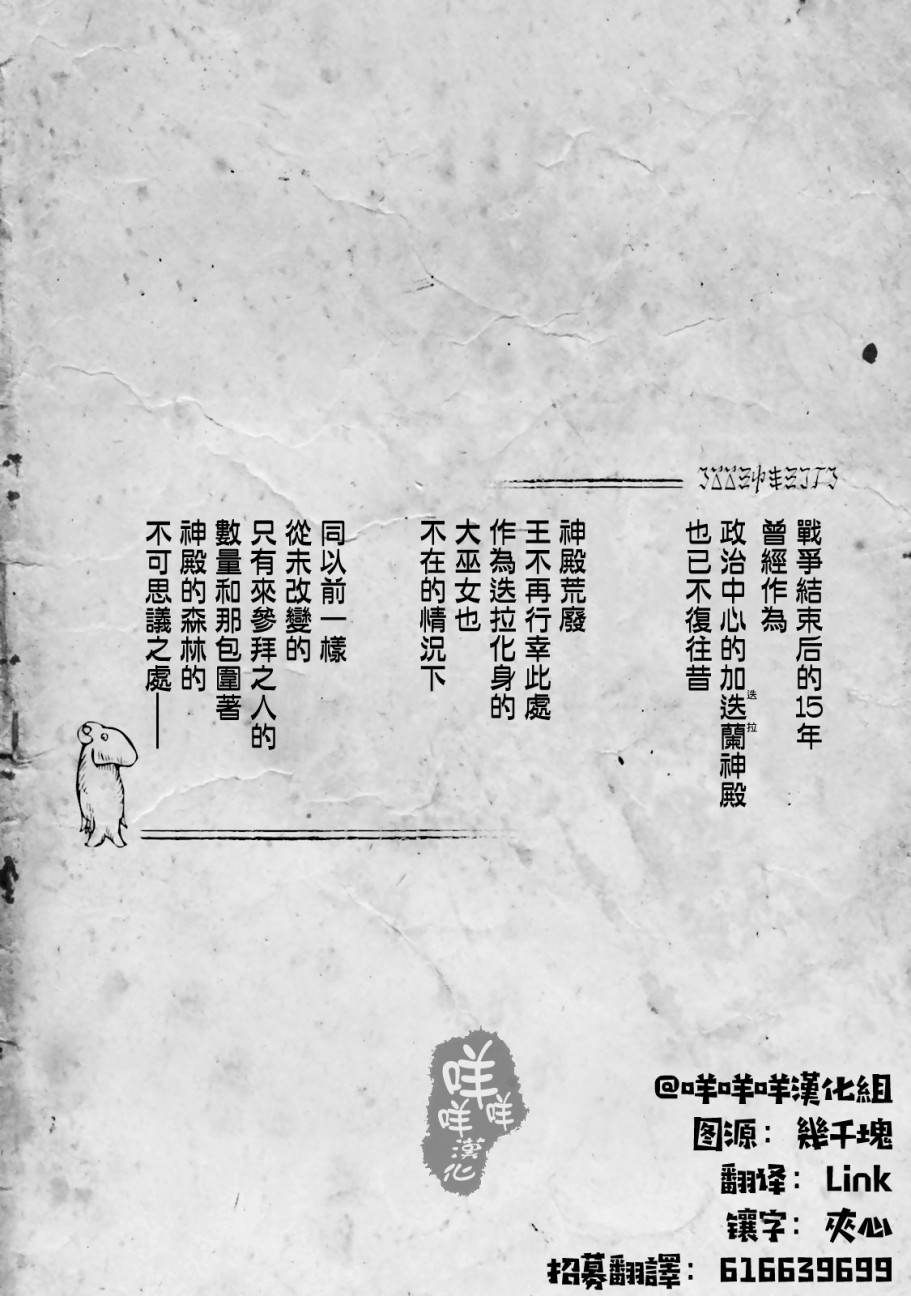 戰爭結束后的15年
曾經作為
政治中心的加迭蘭神殿
迭拉
也已不復往昔
神殿荒廢
王不再行幸此處
作為迭拉化身的
大巫女也
不在的情況下
同以前一樣
從未改變的
只有來參拜之人的
數量和那包圍著
神殿的森林的
不可思議之處——
咩
咩咩
漢化
@咩咩咩漢化組
图源：幾千塊
翻译：Link
镶字：夾心
招募翻譯：616639699